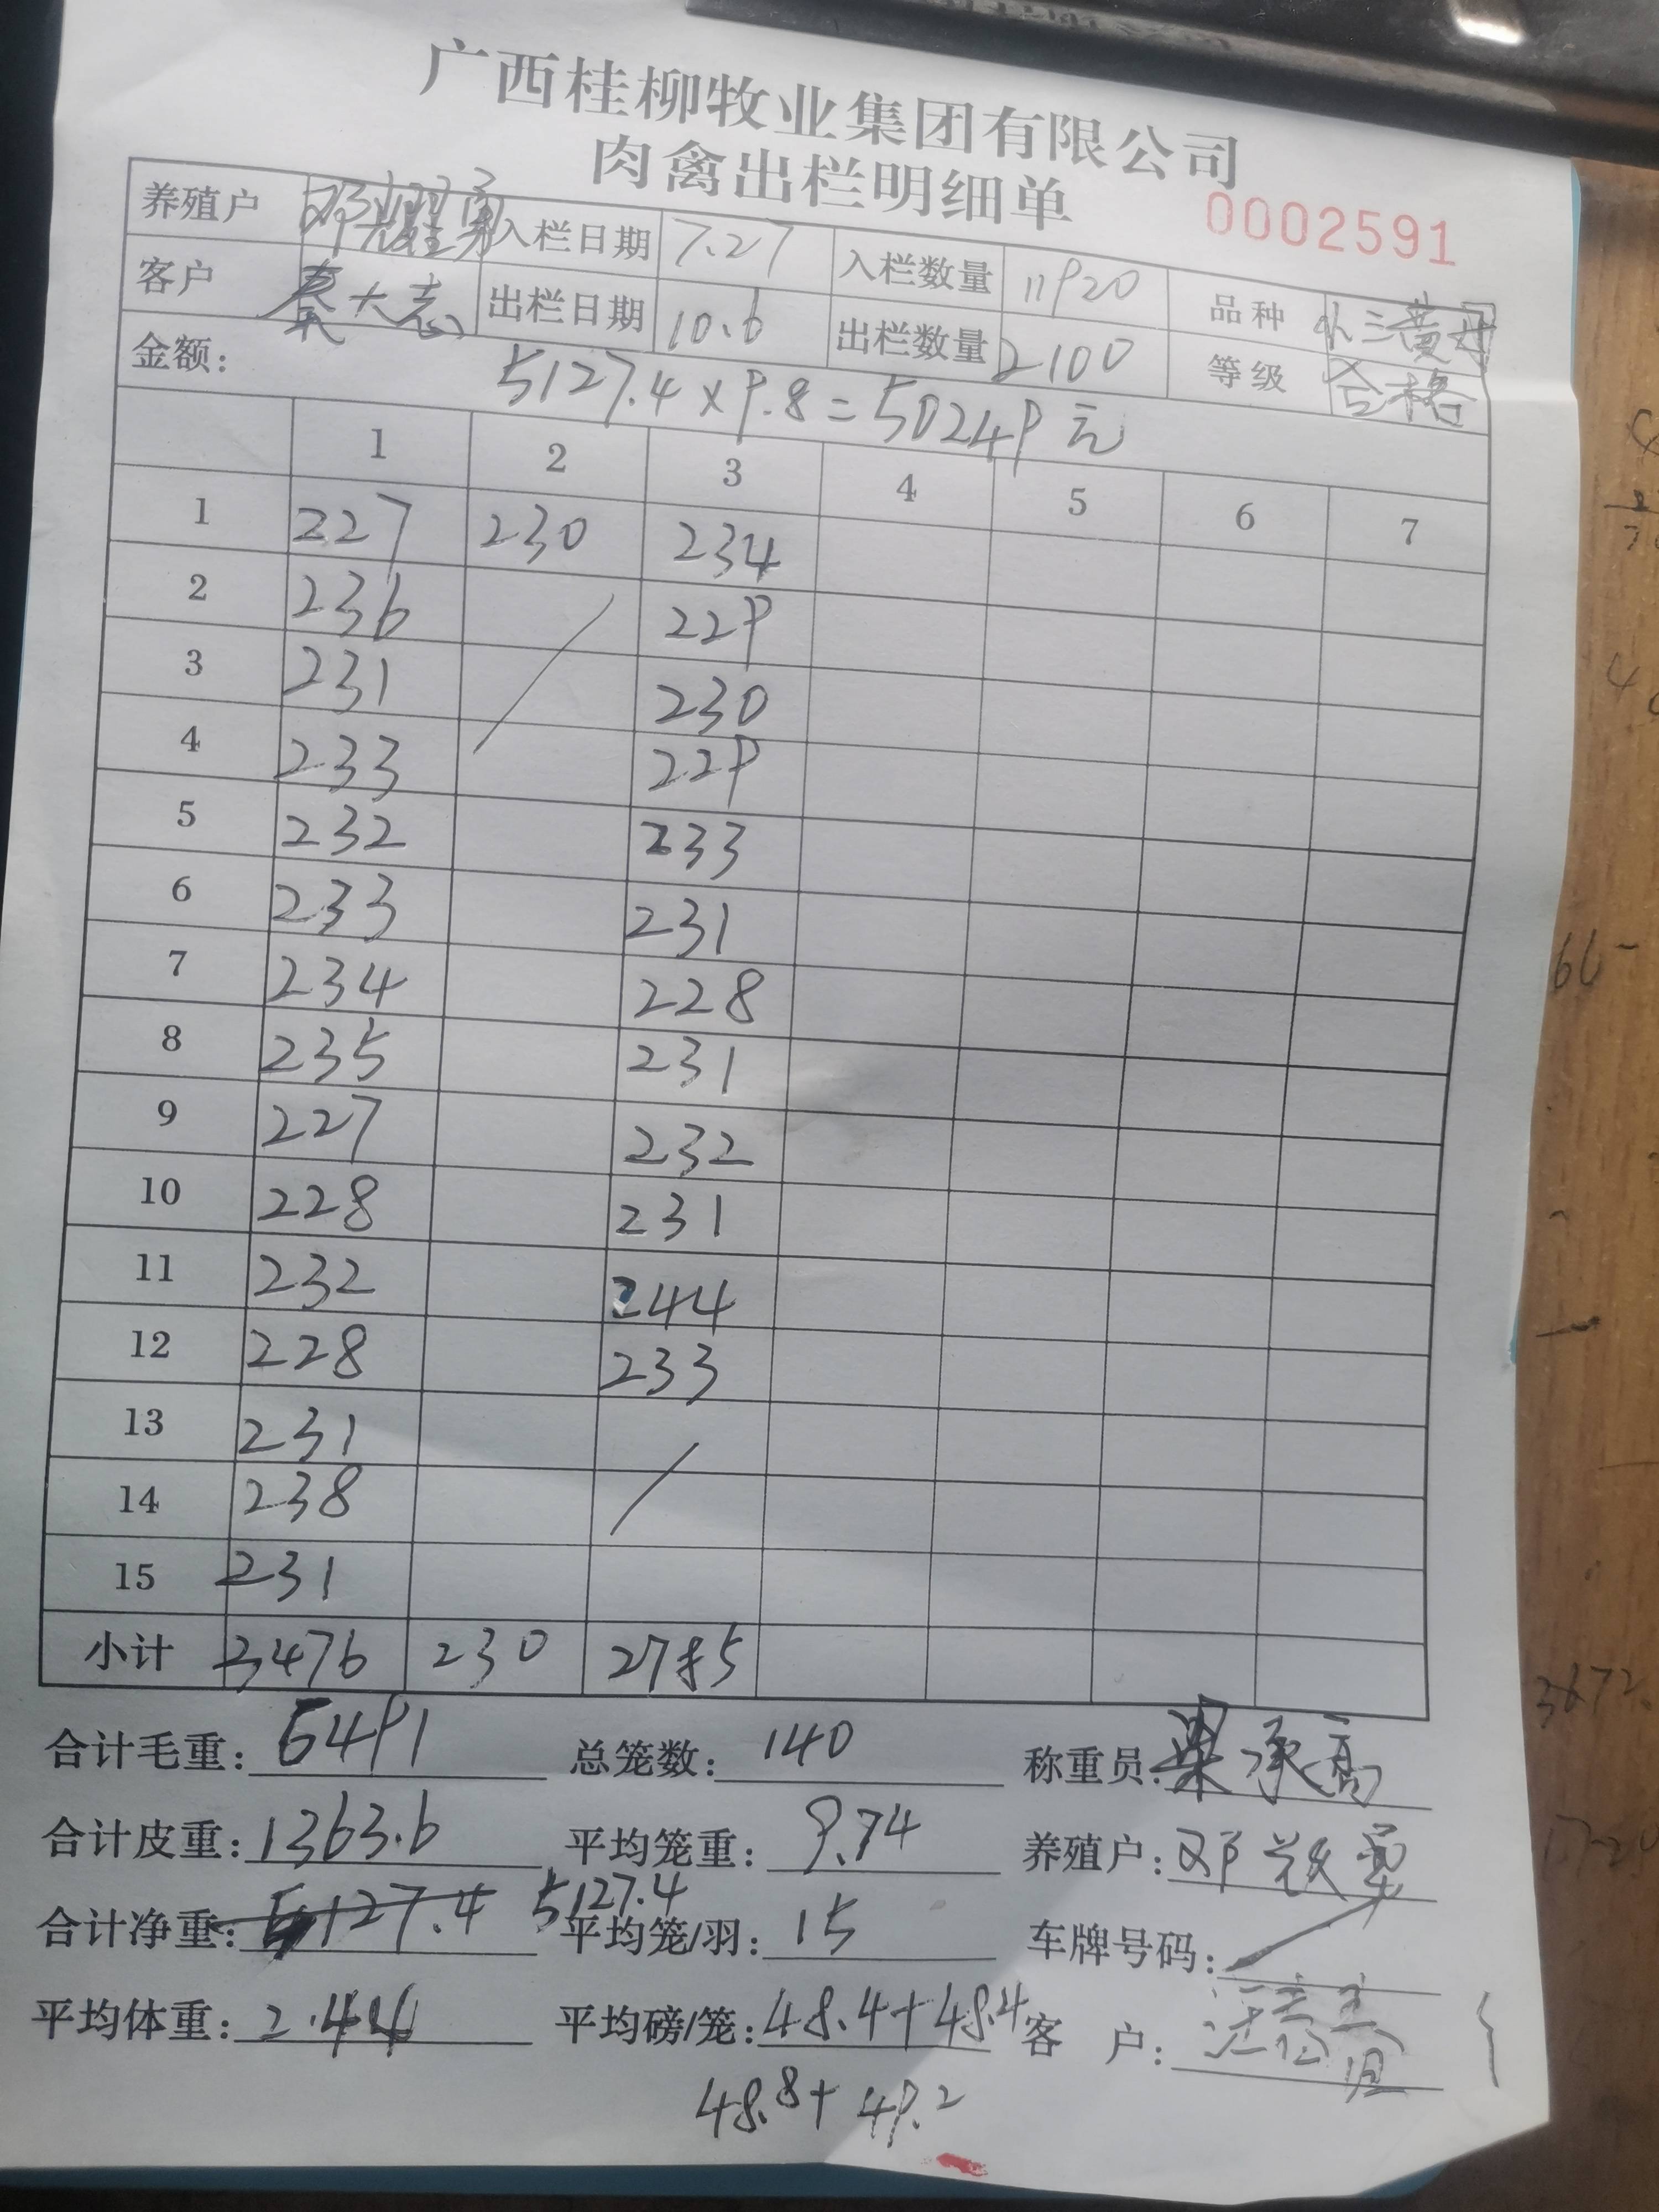 广西桂柳牧业集团有限公司
肉禽出栏明细单
0002591
养殖户 邓耀勇 入栏日期 7.27 入栏数量 11920 品种 小三黄母
客户 秦大志 出栏日期 10.6 出栏数量 2100 等级 合格
金额: 5127.4×9.8=50249元
1 2 3 4 5 6 7
1 227 230 234
2 236 229
3 231 230
4 233 229
5 232 233
6 233 231
7 234 228
8 235 231
9 227 232
10 228 231
11 232 244
12 228 233
13 231
14 238
15 231
小计 3476 230 2785
合计毛重: 6491 总笼数: 140 称重员: 梁承高
合计皮重: 1363.6 平均笼重: 9.74 养殖户: 邓
合计净重: 5127.4 5127.4 平均笼/羽: 15 车牌号码:
平均体重: 2.44 平均磅/笼: 48.4+48.4 客 户:
48.8+49.2